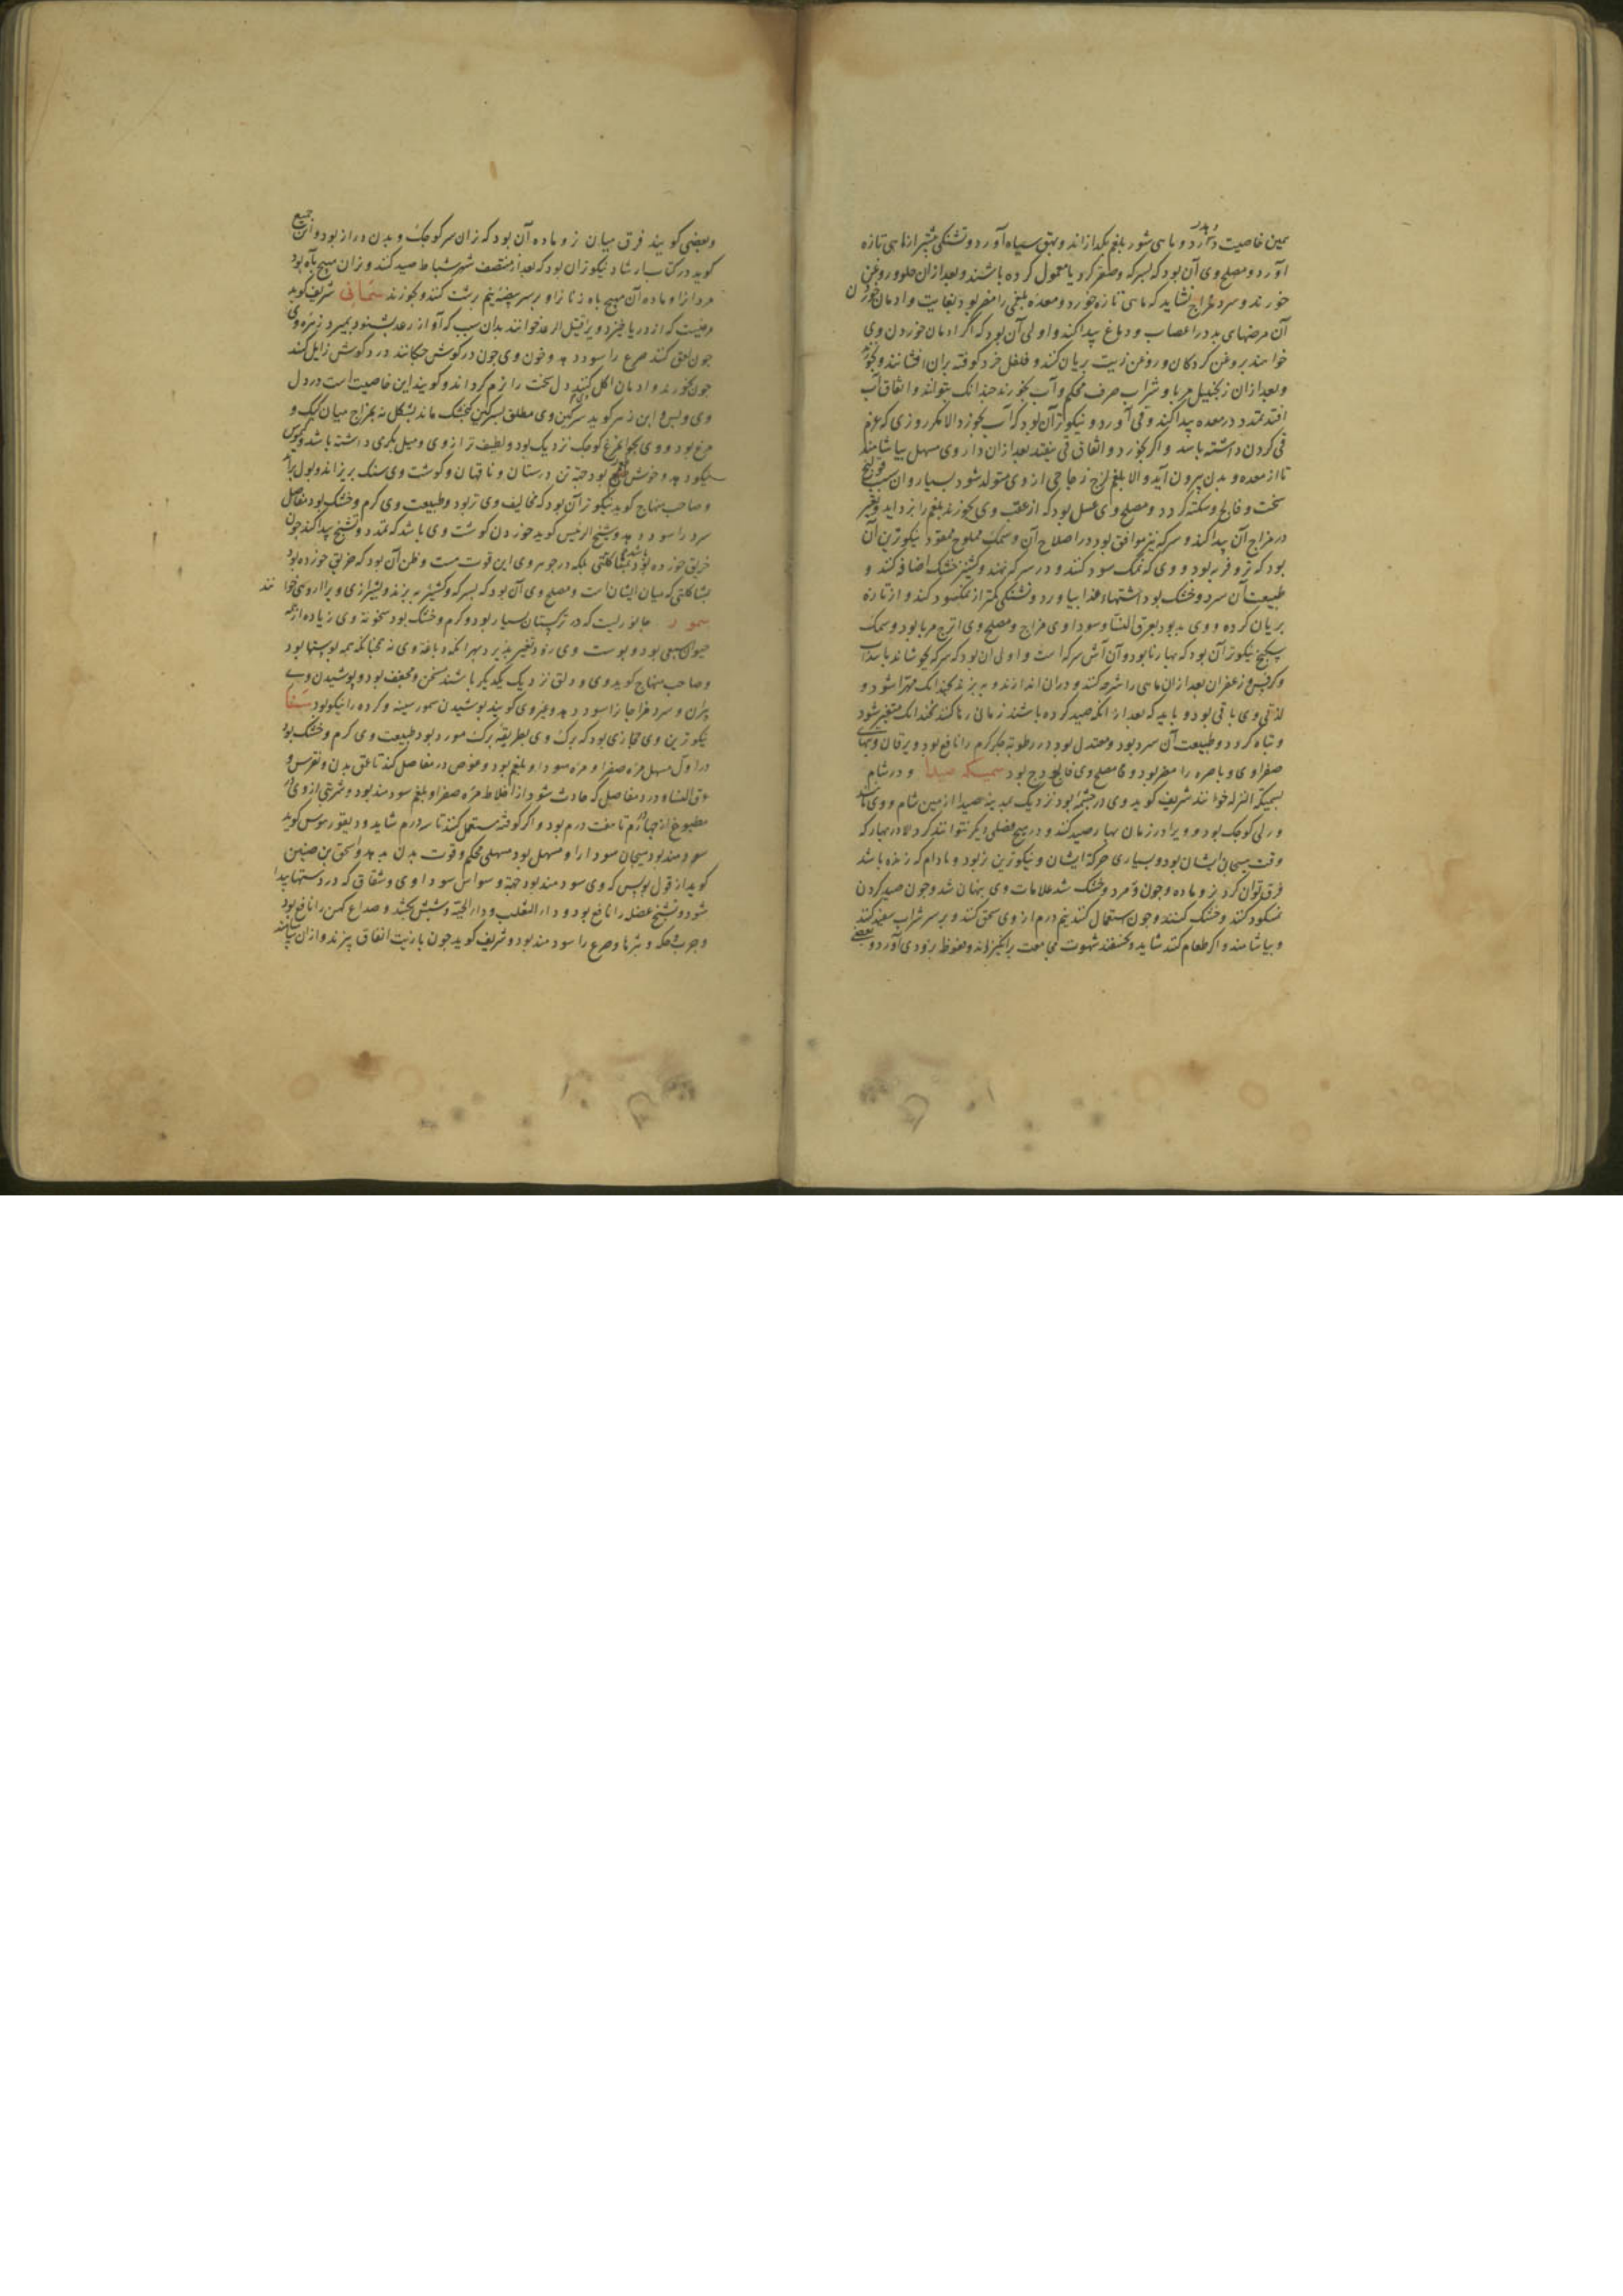 همین خاصیت دارد و ماهی شور بلغم بگدازاند و بهق سیاه آورد و تشنکی بیشتر از ماهی تازه
آورد و مصلح وی آن بود که بسرکه و صعتر کرد یا معمول کرده باشند و بعد ازان حلوا و روغن
خورند و سرد مزاج نشاید که ماهی تازه خورد و معده بلغمی را مضر بود بغایت و ادمان خوردن
آن مرضهای بد در اعصاب و دماغ پیدا کند و اولی آن بود که اگر ادمان خوردن وی
خواهند بروغن کردکان و روغن زیت بریان کنند و فلفل خرد کوفته بران افشانند و بخورند
و بعد ازان زنجبیل مربا و شراب صرف محکم و آب نخورند چندانک بتوانند و اتفاق آب
افتد تمدد در معده پیدا کند و قی آورد و نیکوتر آن بود که آب نخورد الا مکر روزی که عزم
قی کردن داشته باشد و اگر بخورد و اتفاق قی نیفتد بعد ازان داروی مسهل بیاشامند
تا از معده و بدن بیرون آید والا بلغم لزج زجاجی از وی متولد شود بسیار و ان سبب قولنج
سخت و فالج و سکته کردد و مصلح وی عسل بود که از عقب وی بخورند بلغم را بزداید و تغیر
در مزاج آن پیدا کند و سرکه نیز موافق بود در اصلاح آن و سمک مملوح ممقور نیکوترین آن
بود که تر و فربه بود و وی که نمک سود کنند و در سرکه نهند و کشنیز خشک اضافه کنند و
طبیعت آن سرد و خشک بود اشتهاء غذا بیاورد و تشنکی کمتر از نمکسود کند و از تازه
بریان کرده و وی بد بود بعرق النسا و سوداوی مزاج و مصلح وی اترج مربا بود و سمک
سکبج نیکوتر آن بود که بهارتا بود و آن آش سرکه است و اولی آن بود که سرکه بجوشاند با سداب
و کرفس و زعفران بعد ازان ماهی را شرحه کنند و دران اندازند و بپزند چندانک مهرا شود و
لذتی وی باقی بود و باید که بعد از آنکه صید کرده باشند زمانی رها کنند نچندانک متغیر شود
و تباه کردد و طبیعت آن سرد بود و معتدل بود در رطوبة جکر کرم را نافع بود و یرقان و تبهای
صفراوی و باصره را مضر بود و مصلح وی فالوذج بود سمیکه صیدا و در شام
سمیکه النزله خوانند شریف کوید وی در چشمه بود نزدیک بمدینه صیدا از زمین شام و وی ماهی
ورلی کوچک بود و ویرا در زمان بهار صید کنند و در هیچ فصلی دیکر نتوانند کرد الا در بهار که
وقت هیجان ایشان بود و بسیاری حرکة ایشان و نیکوترین نر بود و مادام که زنده باشد
فرق توان کرد نر و ماده و چون مرد و خشک شد علامات وی پنهان شد و چون صید کردن
نمکسود کنند و خشک کنند و چون استعمال کنند نیم درم از وی سحق کنند و بر سر شراب سفید کنند
و بیاشامند و اکر طعام کنند شاید و بخسفند شهوت مجامعت برانکیزاند و نعوظ بزودی آورد و بعضی
و بعضی کویند فرق میان نر و ماده آن بود که نر ان سر کوچک و بدن دراز بود و ابن جمیع
کوید در کتاب ارشاد نیکوتر ان بود که بعد از منتصف شهر شباط صید کنند و نر ان مهیج باه بود
مردانرا و ماده آن مهیج باه زنانرا و بر سر بیضه نیم برشت کنند و بخورند سمانی شریف کوید
مرغیست که از دریا خیزد و ویرا قتیل الرعد خوانند بدان سبب که آواز رعد بشنود بمیرد زهره وی
چون لعق کنند صرع را سود دهد و خون وی چون در کوش چکانند درد کوش زایل کند
چون بخورند و ادمان اکل کنند دل سخت را نرم کرداند و کویند این خاصیت است در دل
وی و بس و ابن زهر کوید سرکین وی مطلق بسرکین کنجشک ماند بشکل نه بمزاج میان کبک و
مرغ بود و وی بجوامرغ کوچک نزدیک بود و لطیف تر از وی و میل بکرمی داشته باشد و کیموس
نیکو دهد و خوش طعم بود جهة تن درستان و ناقهان و کوشت وی سنک بریزاند و بول براند
و صاحب منهاج کوید نیکوتر آن بود که مخالیف وی تر بود و طبیعت وی کرم و خشک بود مفاصل
سرد را سود دهد و شیخ الرئیس کوید خوردن کوشت وی باشد که تمدد و تشنج پیدا کند چون
خربق خورده بود نه بمشاکلتی بلکه در جوهر وی این قوت هست و ظن آن بود که خربق خورده بود
بمشاکلتی که میان ایشان است و مصلح وی آن بود که بسرکه و کشنیز بپزند و بشیرازی ویرا اردسی خوانند
سمور جانوریست که در ترکستان بسیار بود و کرم و خشک بود سخونة وی زیاده از همه
حیوان سبعی بود و پوست وی زود تغیر پذیرد بهر آنکه دباغة وی نه همچنانکه همه پوستها بود
و صاحب منهاج کوید وی و دلق نزدیک یکدیکر باشند مسخن و مجفف بود و پوشیدن وی
پیران و سرد مزاجانرا سود دهد و غیر وی کویند پوشیدن سمور سینه و کرده را نیکو بود سنا
نیکوترین وی حجازی بود که برک وی بطریقه برک مورد بود طبیعت وی کرم و خشک بود
در اول مسهل مرة صفرا و مرة سودا و بلغم بود و غوص در مفاصل کند تا عمق بدن و نقرس و
عرق النسا و درد مفاصل که حادث شود از اخلاط مره صفرا و بلغم سودمند بود و شربتی از وی در
مطبوخ از چهار درم تا هفت درم بود و اکر کوفته مستعمل کنند تا سه درم شاید و دیقوریدوس کوید
سودمند بود هیجان سودا را و مسهل بود مسهلی محکم و قوت بدن بدهد و اسحق بن حنین
کوید از قول بولس که وی سودمند بود جهة وسواس سوداوی و شقاق که در دستها پیدا
شود و تشنج عضل را نافع بود و داء الثعلب و داء الحیه و شپش بکشد و صداع کهن را نافع بود
و جرب و حکه و بثرها و صرع را سودمند بود و شریف کوید چون با زیت انفاق بپزند و ازان بیاشامند